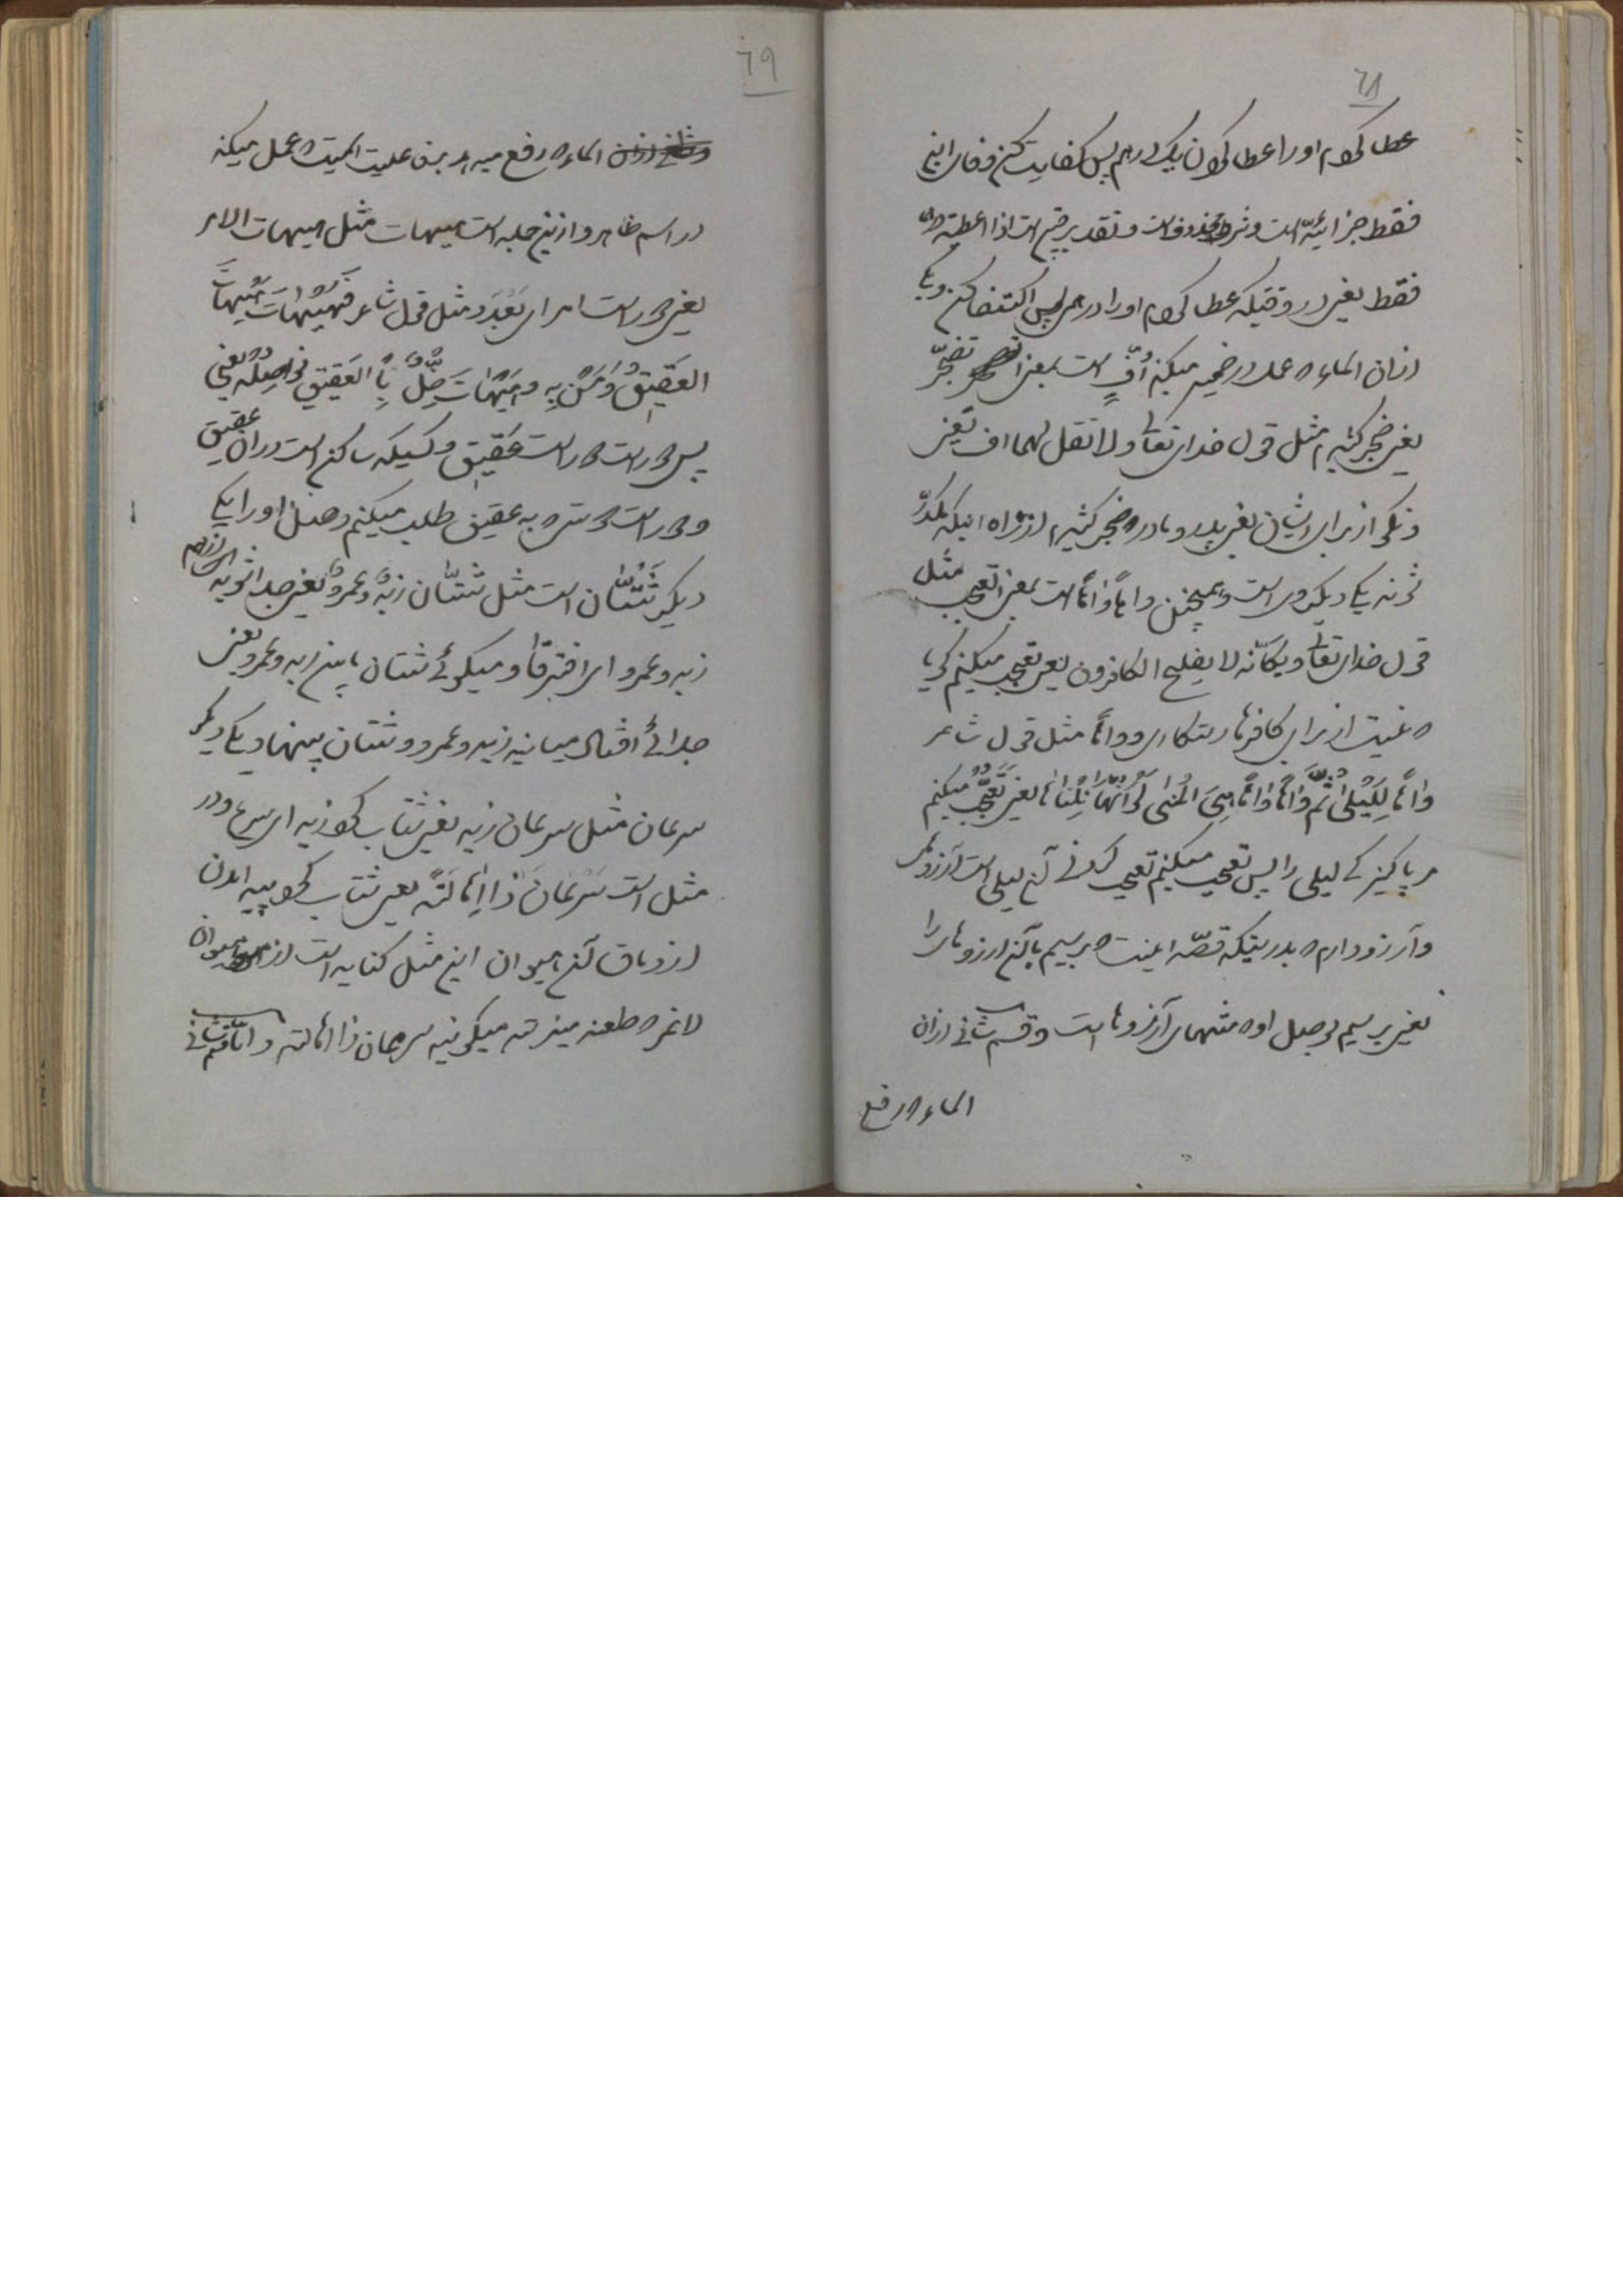 ٦٨
عطا کردم او را عطا کردن یک درهم پس کفایت کن و فاء این
فقط جزائیّه است و شرط محذوفست و تقدیر چنین است اذا اعطیته درهما
فقط یعنی در وقتیکه عطا کردم او را درهم پس اکتفا کن و یکی
ازان اسماء که عمل در ضمیر میکند اُفٍّ است بمعنی تضجّر
یعنی ضجر کشیدم مثل قول خدای تعالی و لا تقل لهما اف یعنی
و نگو از برای ایشان یعنی پدر و مادر که ضجر کشیدم از راه اینکه
یکی دیگر وی است و همچنین واهاً و واهاً است بمعنی اتعجب مثل
قول خدای تعالی ویکأنّه لا یفلح الکافرون یعنی تعجب میکنم گویا
که نیست از برای کافرها رستکاری و واهاً مثل قول شاعر
واهاً لِلَیلی ثُمَّ واهاً واهاً هِیَ المُنی لَو اَنَّها نِلناها یعنی تعجّب میکنم
مر پاکیزگی لیلی را پس تعجب میکنم تعجب کردنی آن لیلی است آرزوی
و آرزو دارم که بدرستیکه قصّه اینست که برسیم بآن ارزوهای را
یعنی برسیم بوصل او که منتهای آرزوها است و قسم ثانی ازان
اسماء که رفع
٦٩
اسماء که رفع میدهد بنا بر فاعلیت آنست که عمل میکند
در اسم ظاهر و ازین جمله است هیهات مثل هیهات الامر
یعنی دور است امر ای بَعُدَ و مثل قول شاعر فَهَیهاتَ هَیهاتَ
العَقیقُ وَ مَن بِهِ و هَیهاتَ خِلٌّ بِالعَقیقِ نُواصِلُه یعنی
پس دور است دور است عَقیق و کسیکه ساکن است در ان عقیق
و دور است دوستی که به عقیق طلب میکنیم وصل او را یکی
دیگر شَتّان است مثل شتّان زیدٌ و عمروٌ یعنی جدا شدند از هم
زید و عمرو ای افترقا و میگوئی شتان ما بین زید و عمرو یعنی
جدائی افتاد میانه زید و عمرو و شتان بینهما و یکی دیگر
سرعان مثل سرعان زید یعنی شتاب کرد زید ای سرع و در
مثل است سَرعانَ ذا اِهالَةً یعنی شتاب کرد پیه
از دماق آن حیوان این مثل کنایه است از حیوان
لاغر که طعنه میزنند میگویند سرعان ذا اهالة و امّا قسم ثانی